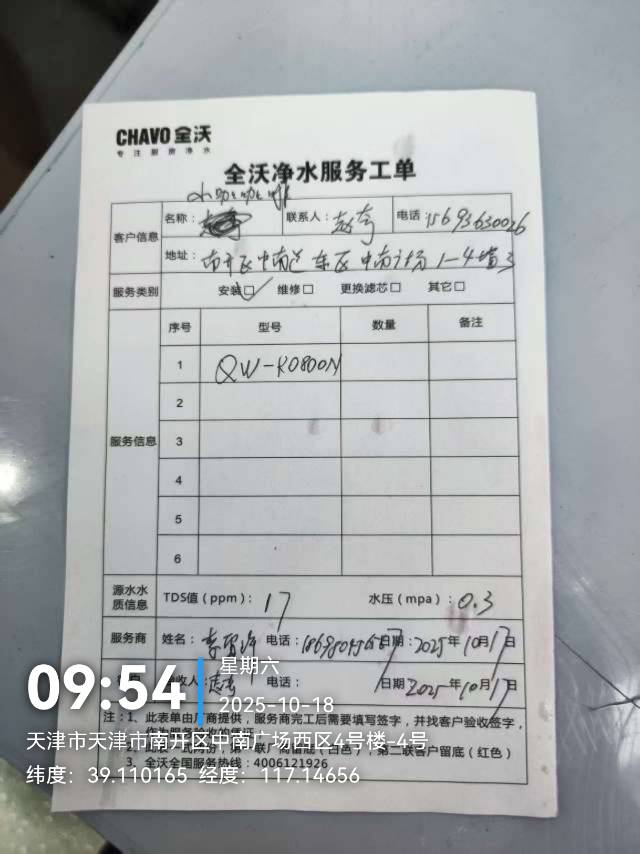 CHAVO 全沃
专注厨房净水
全沃净水服务工单
客户信息 名称： 联系人：赵奇 电话：15693630026
地址：南开区中南道东区中南广场1-4
服务类别 安装□✓ 维修□ 更换滤芯□ 其它□
服务信息 序号 型号 数量 备注
1 QW-K0800N
2
3
4
5
6
源水水质信息 TDS值（ppm）：17 水压（mpa）：0.3
服务商 姓名：李 电话： 日期：2025年10月17日
收人： 电话： 日期2025年10月17日
注：1、此表单由厂商提供，服务商完工后需要填写签字，并找客户验收签字，
第二联客户留底（红色）
3、全沃全国服务热线：4006121926
09:54
星期六
2025-10-18
天津市天津市南开区中南广场西区4号楼-4号
纬度：39.110165 经度：117.14656